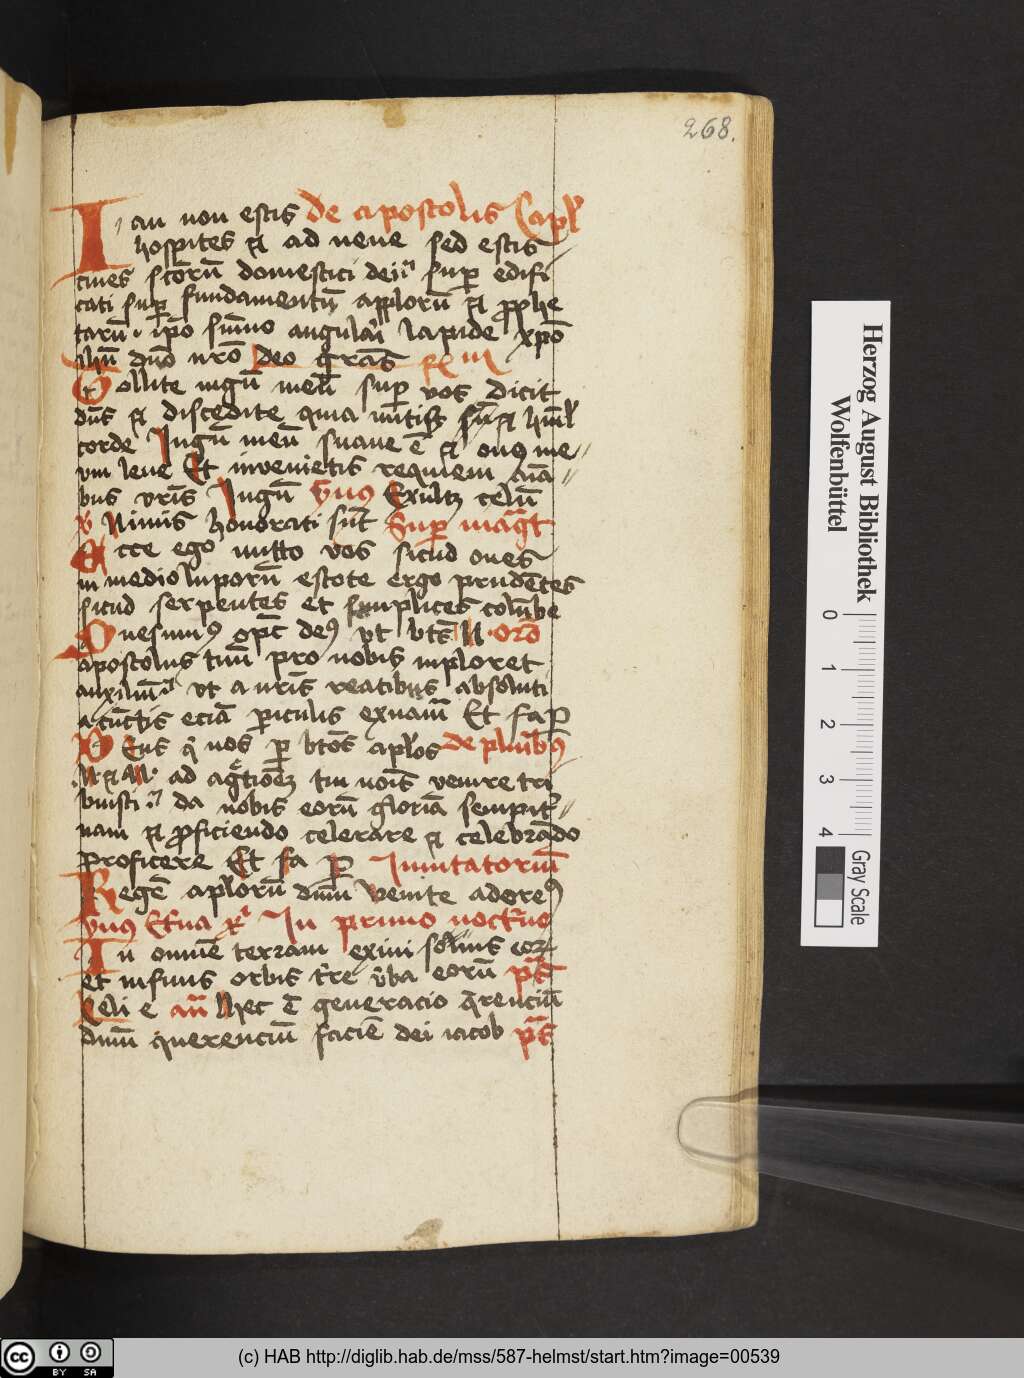 268.
Iam non estis de apostolis Capl
hospites et ad uene sed estis
ciues sctoru domestici dei sup edifi
cati sup fundamentu applorum et pphe
taru ipo sumo angulari lapide xpo
ihu dno nro Deo gras
Tollite iugu meu sup vos dicit
dns et discedite quia mitis su et huml
corde Jugu meu suaue e et onus me
um leue Et inuenietis requiem aia
bus vris Jugu ymus Exultz celu
Nimis honorati sut Super magt
Ecce ego mitto vos sicud oues
in medio luporu estote ergo prudetes
sicud serpentes et simplices colube
Quesumus opc deus vt bts N oro
apostolus tuus pro nobis inploret
auxiliu vt a nris reatibus absoluti
a cuctis ecia periculis exuam Et fa p
Deus q nos p btos aplos de pluribus
N et N ad agtioez tui nois venire tri
buisti da nobis eoru gloria sempit
nam et proficiendo celerare et celebrado
proficere Et fa p Inuitatoriu
Rege aploru dnm Venite adoremus
ymus Etna In primo nocturno
In omne terram exiuit sonus eor
et in fines orbis tre vba eoru ps
Celi e an Hec e generacio qrenciu
dnm querenciu facie dei iacob ps
Herzog August Bibliothek
Wolfenbüttel
0 1 2 3 4
Gray Scale
cc BY SA
(c) HAB http://diglib.hab.de/mss/587-helmst/start.htm?image=00539